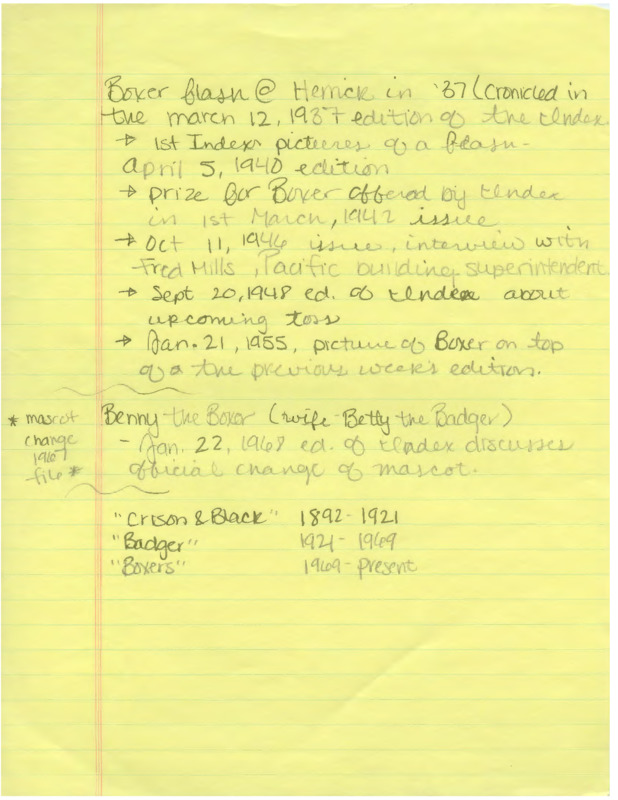 Boxer flash @ Herrick in '37 (Cronicled in
the march 12, 1937 edition of the Index.
→ 1st Index pictures of a flash -
April 5, 1940 edition
→ prize for Boxer offered by Index
in 1st March, 1942 issue
→ Oct 11, 1946 issue, interview with
Fred Mills, Pacific building superintendent.
→ Sept 20, 1948 ed. of Index about
upcoming toss
→ Jan. 21, 1955, picture of Boxer on top
of a the previous week's edition.
* mascot
change
1967
-file *
Benny the Boxer (wife - Betty the Badger)
- Jan. 22, 1968 ed. of Index discusses
official change of mascot.
"Crison & Black" 1892 - 1921
"Badger" 1921 - 1969
"Boxers" 1969 - present